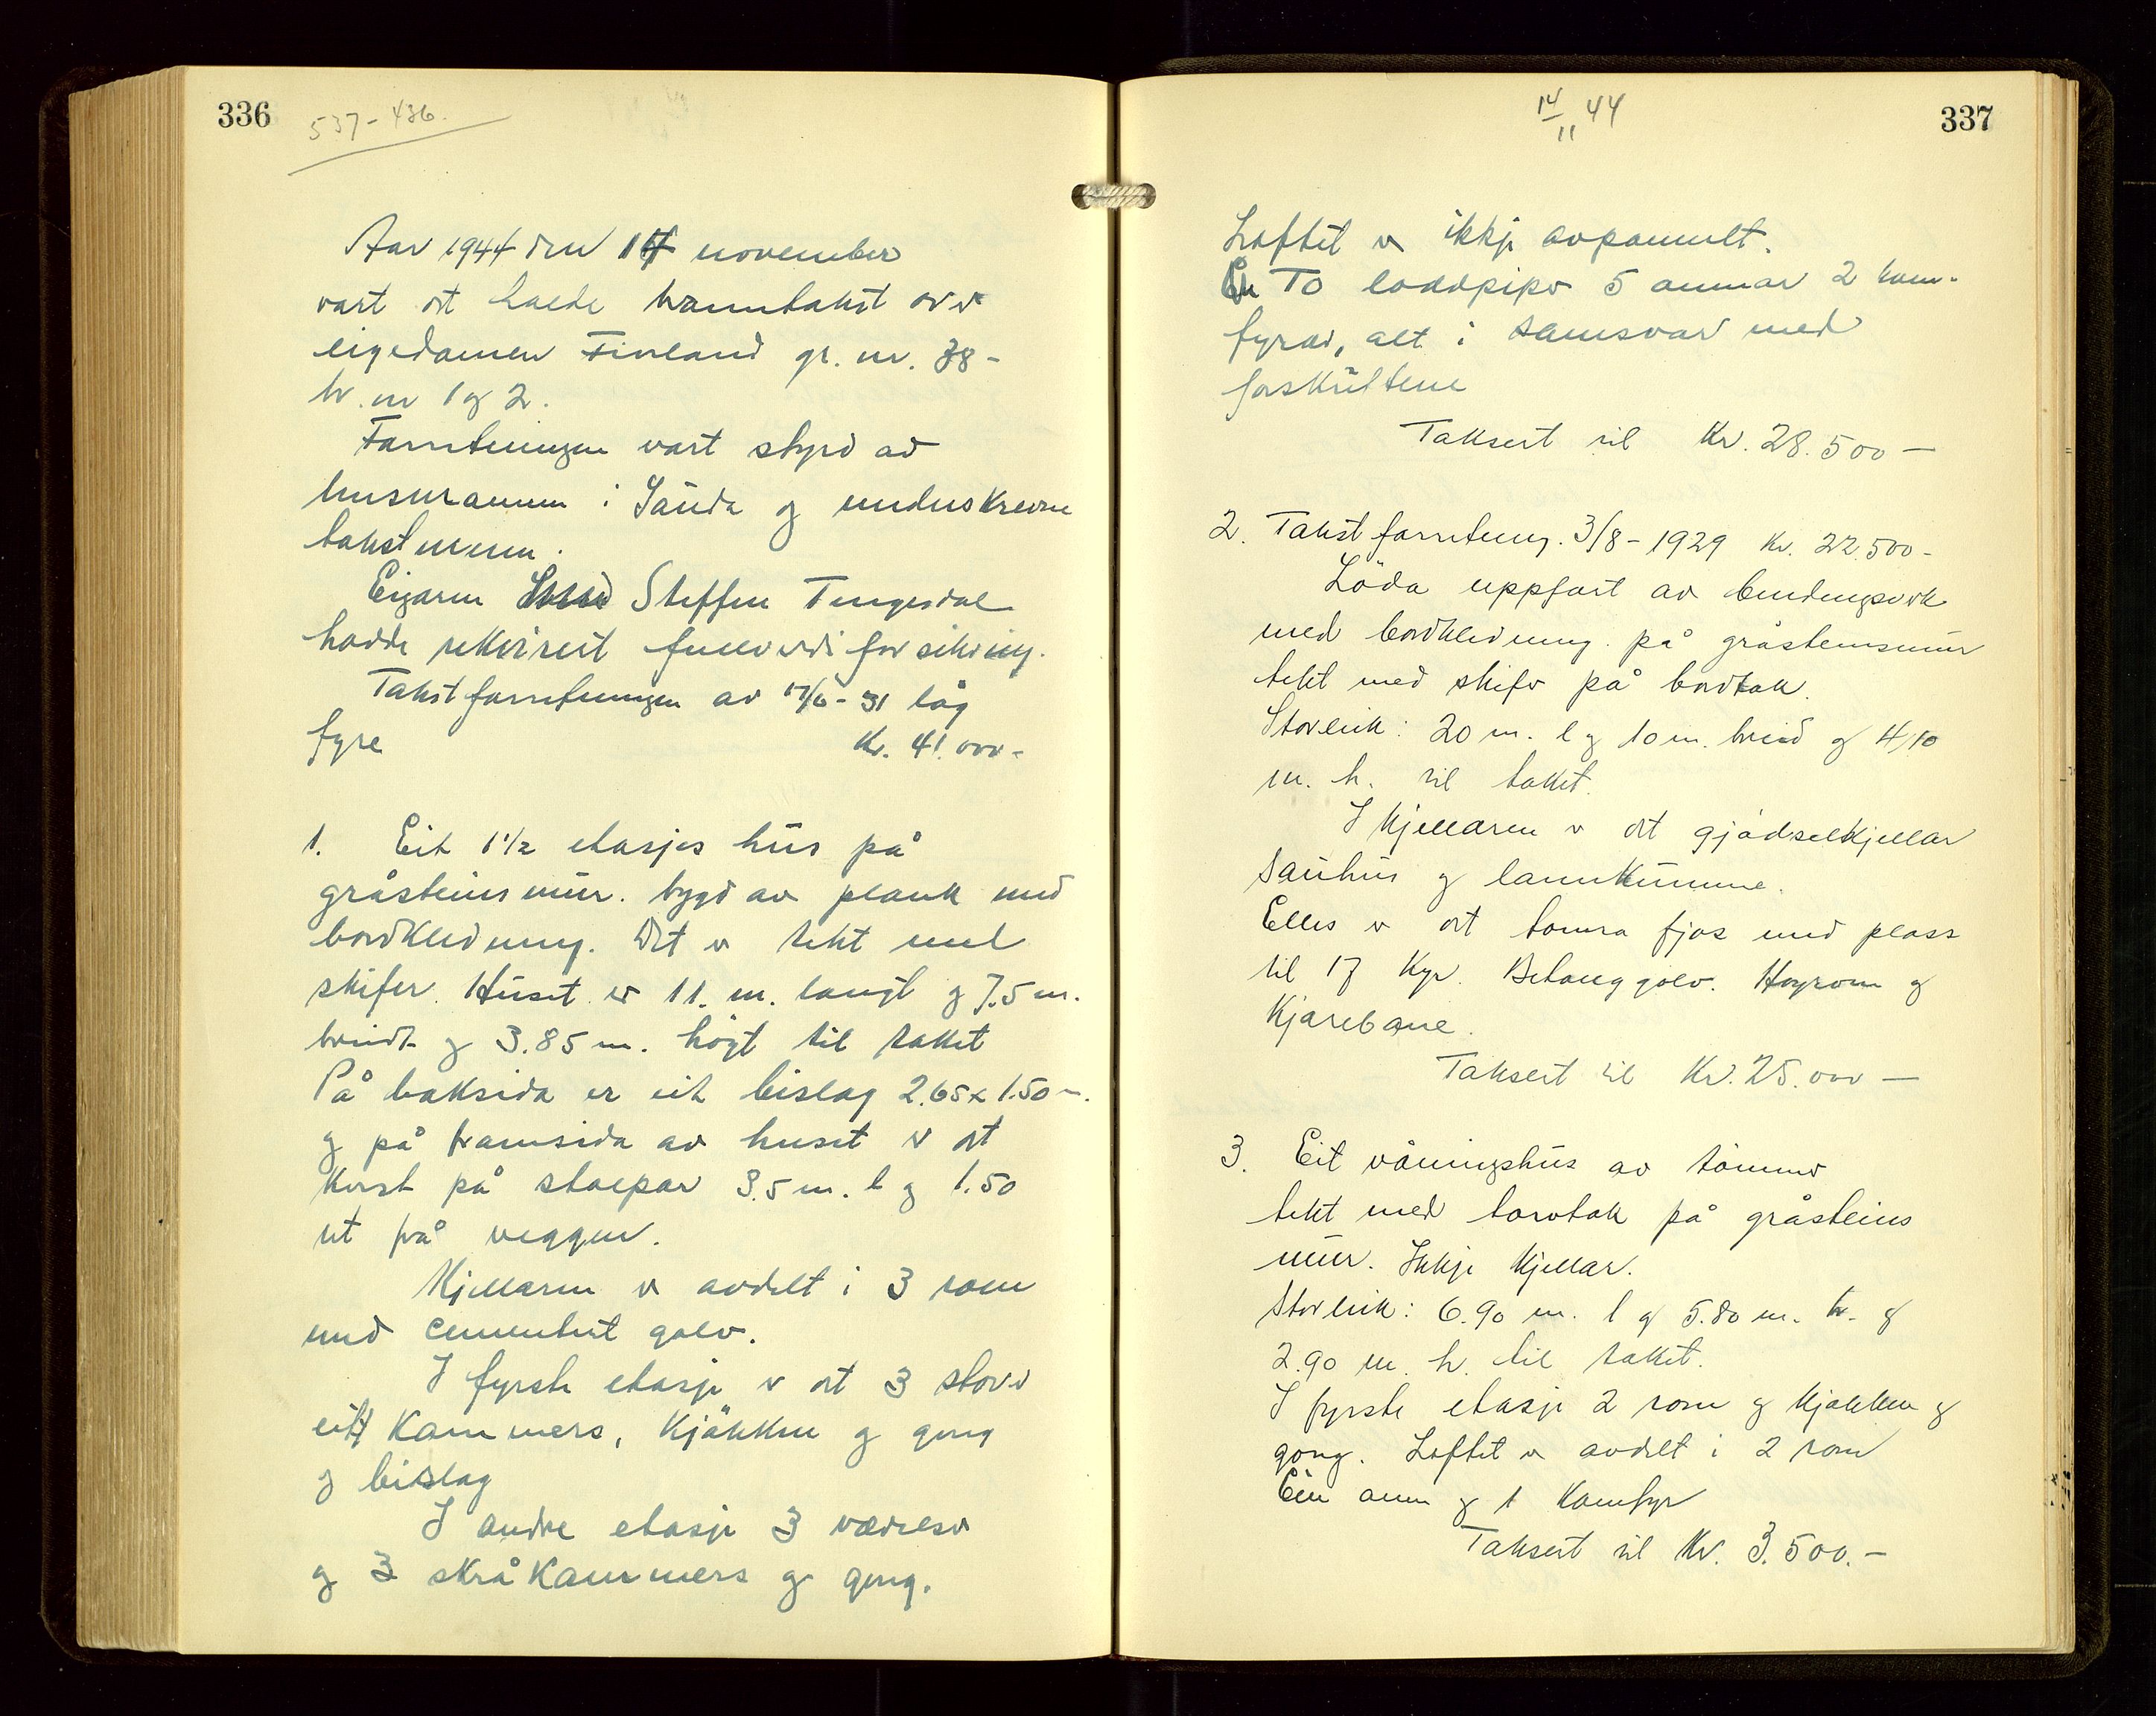 336
537-436.
Aar 1944 den 14 november
vart det halde branntakst over
eigedomen Finland gr. nr. 38-
br. nr 1 og 2.
Forretningen vart styrd av
husmannen i Sauda og underskrevne
takstmenn.
Eigaren Steffen Tengesdal
hadde rekvirert fullverdiforsikring.
Takstforretningen av 17/6-31 låg
fyre Kr. 41.000-
1. Eit 1 1/2 etasjes hus på
gråsteinsmur. bygd av plank med
bordkledning. Det er tekt med
skifer. Huset er 11. m. langt og 7.5 m.
breidt og 3.85 m. högt til taket
På baksida er eit bislag 2.65 x 1.50 m.
og på framsida av huset er det
kvist på stolpar 3.5 m. l og 1.50
ut frå veggen.
Kjellaren er avdelt i 3 rom
med cementert golv.
I fyrste etasje er det 3 stover
eitt kammers, kjökken og gong
og bislag
I andre etasje 3 værelser
og 3 skråkammers og gong.
14/11 44
337
Loftet er ikkje avpanult.
To loddpiper 5 omnar 2 kom-
fyrar, alt i samsvar med
forskriftene
Taksert til Kr. 28.500-
2. Takstforretning. 3/8-1929 Kr. 22.500-
Löda uppfört av bindingsverk
med bordkledning. på gråsteinsmur
tekt med skifer på bordtak.
Storleik: 20 m. l og 10 m. breid og 4,10
m. h. til taket.
I kjellaren er det gjödselkjellar
sauhus og lannkumme.
Elles er det tomra fjos med plass
til 17 kyr. Betonggolv. Höyrom og
kjörebane.
Taksert til Kr. 25.000-
3. Eit våningshus av tömmer
tekt med torvtak på gråsteins
mur. Ikkje kjellar.
Storleik: 6.90 m. l og 5.80 m. br. og
2.90 m. h. til taket.
I fyrste etasje 2 rom og kjökken og
gong. Loftet er avdelt i 2 rom
Ein omn og 1 komfyr
Taksert til Kr. 3.500.-